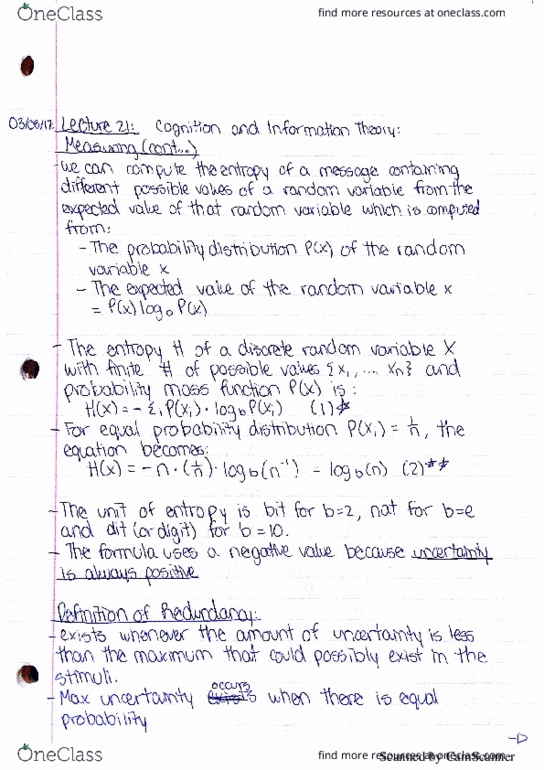 OneClass
find more resources at oneclass.com
03/08/17 Lecture 21: Cognition and Information Theory:
Measuring (cont...)
- we can compute the entropy of a message containing
different possible values of a random variable from the
expected value of that random variable which is computed
from:
- The probability distribution P(x) of the random
variable x
- The expected value of the random variable x
= P(x) log b P(x)
- The entropy H of a discrete random variable X
with finite # of possible values {x₁, ... xn} and
probability mass function P(x) is:
H(x) = - Σi P(xi) · logb P(xi) (1)*
- For equal probability distribution P(xi) = 1/n, the
equation becomes:
H(x) = - n · (1/n) · logb(n⁻¹) = logb(n) (2)**
- The unit of entropy is bit for b=2, nat for b=e
and dit (or digit) for b=10.
- The formula uses a negative value because uncertainty
is always positive
Definition of Redundancy:
- exists whenever the amount of uncertainty is less
than the maximum that could possibly exist in the
stimuli.
- Max uncertainty occurs when there is equal
probability
OneClass
find more resources at oneclass.com
Scanned by CamScanner